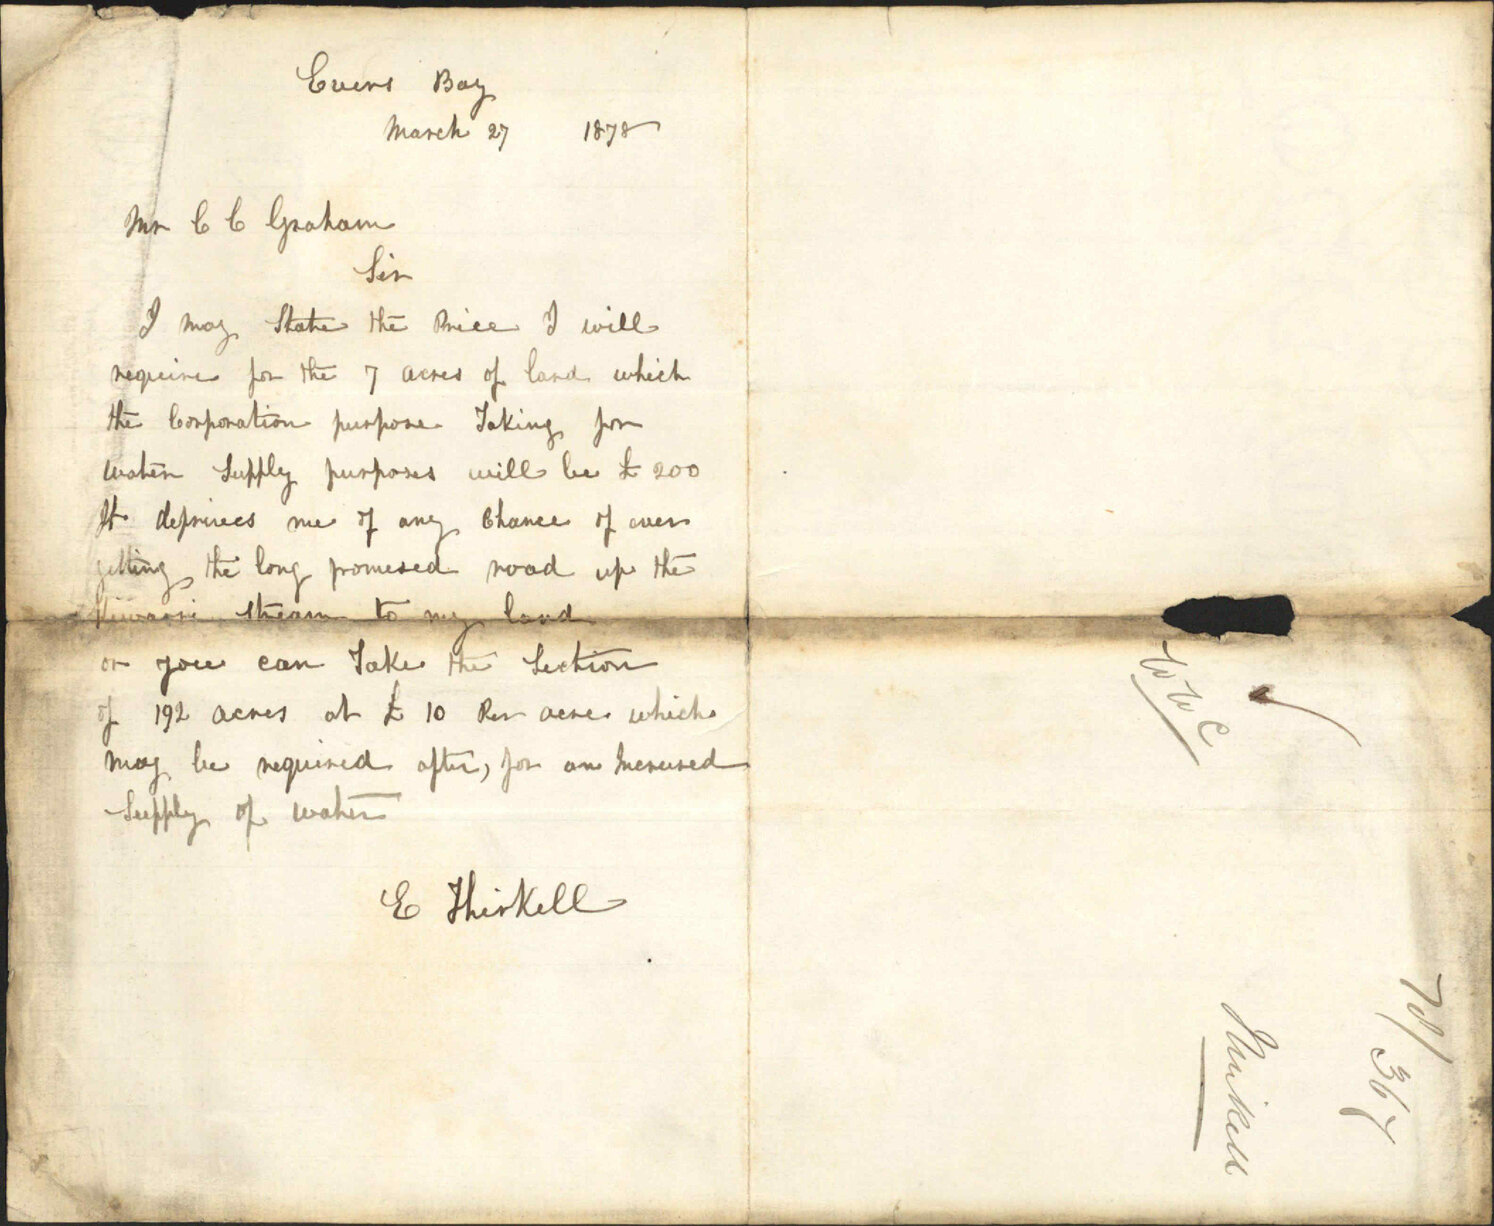 Evens Bay
March 27 1878
Mr C C Graham
Sir
I may State the Price I will
require for the 7 acres of land which
the Corporation purpose Taking for
water Supply purposes will be £200
It deprives me of any Chance of ever
getting the long promesed road up the
stream to my land
or you can Take the Section
of 192 acres at £10 Per acre which
may be required after, for an Increased
Supply of water
E Thirkell
W W C
78/367
Thirkell